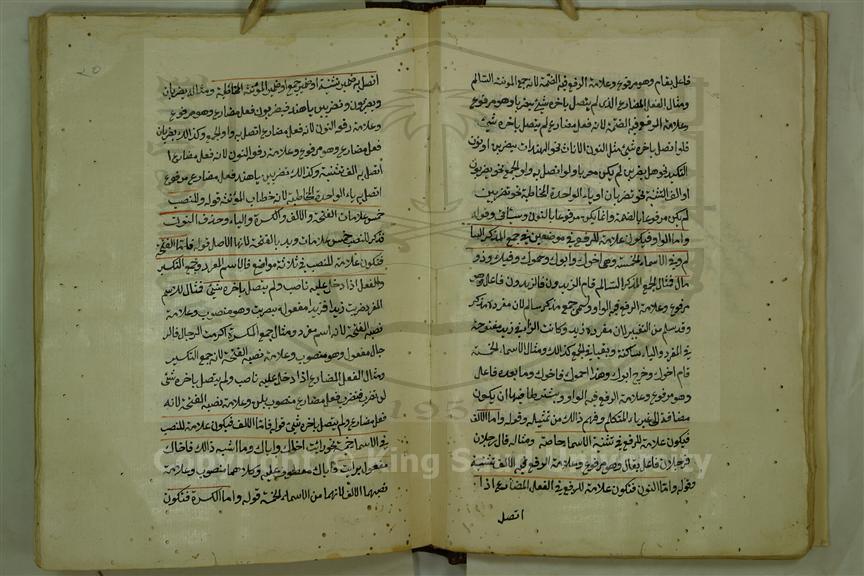 فاعل بقام وهو مرفوع وعلامة الرفع فيه الضمة لانه جمع المونث السالم
ومثال الفعل المضارع الذي لم يتصل باخره شيئ يضرب وهو مرفوع
وعلامة الرفع فيه الضمة لانه فعل مضارع لم يتصل باخره شيئ
فلو اتصل باخره شيئ مثل النون الاناث نحو الهندات يضربن او نون
التكيد نحو هل يضربن لم يكن معربا ولو اتصل به واو الجمع نحو يضربون
او الف التثنية نحو تضربان او ياء الواحدة المخاطبة نحو تضربين
لم يكن مرفوعا بالضمة وانما يكون مرفوعا بالنون وسياتي وقوله
واما الواو فيكون علامة للرفع في موضعين في جمع المذكر السا
لم وفي الاسماء الخمسة وهي اخوك وابوك وحموك وفوك وذو
مال فمثال الجمع المذكر السالم قام الزيدون فالزيدون فاعل وهو
مرفوع وعلامة الرفع فيه الواو وسمي جمع مذكر سالم لان مفرده مذكر
وقد سلم من التغيير لان مفرده زيد وكانت الزاي في زيد مفتوحة
في المفرد والياء ساكنة وبقيا في الجمع كذلك ومثال الاسماء الخمسة
قام اخوك وخرج ابوك وهذا حموك فاخوك وما بعده فاعل
وهو مرفوع وعلامة الرفع فيه الواو ويشترط ايضا ان يكون
مضافة الى غير ياء المتكلم وفهم ذالك من تمثيله وقوله واما الالف
فيكون علامة للرفع في تثنية الاسماء خاصة ومثاله قال رجلان
فرجلان فاعل بقال وهو مرفوع وعلامة الرفع فيه الالف
وقوله واما النون فتكون علامة للرفع في الفعل المضارع اذا
اتصل
اتصل به ضمير تثنية او ضمير جمع او ضمير المؤنثة المخاطبة ومثاله يضربان
ويضربون وتضربين ياهند فيضربون فعل مضارع وهو مرفوع
وعلامة رفعه النون لانه فعل مضارع اتصل به واو الجمع وكذالك يضربان
فعل مضارع وهو مرفوع وعلامة رفعه النون لانه فعل مضارع ا
اتصل به الف تثنية وكذالك تضربين ياهند فعل مضارع مرفوع
اتصل به ياء الواحدة المخاطبة لانه خطاب المؤنثة قوله وللنصب
خمس علامات الفتحة والالف والكسرة والياء وحذف النون
فذكر للنصب خمس علامات وبدا بالفتحة لانها الاصل قوله فاما الفتحة
فتكون علامة للنصب في ثلاثة مواضع في الاسم المفرد وجمع التكسير
والفعل اذا دخل عليه ناصب ولم يتصل باخره شيئ فمثال الاسم
المفرد ضربت زيدا فزيدا مفعول بضربت وهو منصوب وعلامة
نصبه الفتحة لانه اسم مفرد ومثال جمع التكسير اكرمت الرجال فالر
جال مفعول وهو منصوب وعلامة نصبه الفتحة لانه جمع التكسير
ومثال الفعل المضارع اذا دخل عليه ناصب ولم يتصل باخره شيئ
لن نضرب فنضرب فعل مضارع منصوب بلن وعلامة نصبه الفتحة لانه
فعل مضارع ولم يتصل باخره شيئ قوله فاما الالف فيكون علامة للنصب
في الاسماء الخمسة نحو رايت اخاك واباك وما اشبه ذالك فاخاك
مفعول برايت واباك معطوف عليه وكلاهما منصوب وعلامة
نصبهما الالف لانهما من الاسماء الخمسة قوله واما الكسرة فتكون
Copyright © King Saud University